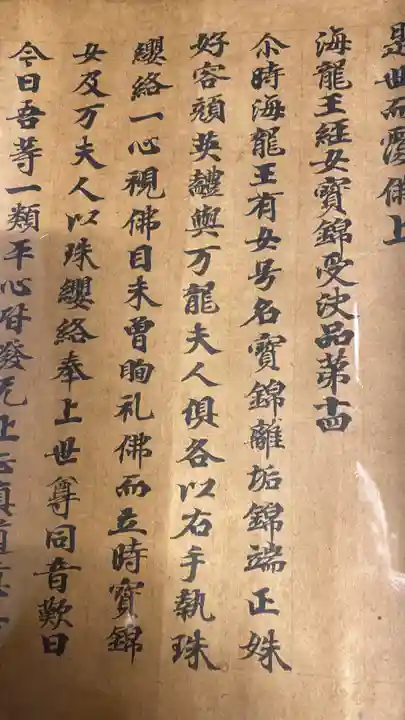 是世而覆佛上
海龍王経女寳錦受决品第十四
尒時海龍王有女号名寳錦離垢錦端正姝
好容顔英艶與万龍夫人俱各以右手執珠
纓絡一心視佛目未曾眴礼佛而立時寳錦
女及万夫人以珠纓絡奉上世尊同音歎曰
今日吾等一類平心皆發无上正真道